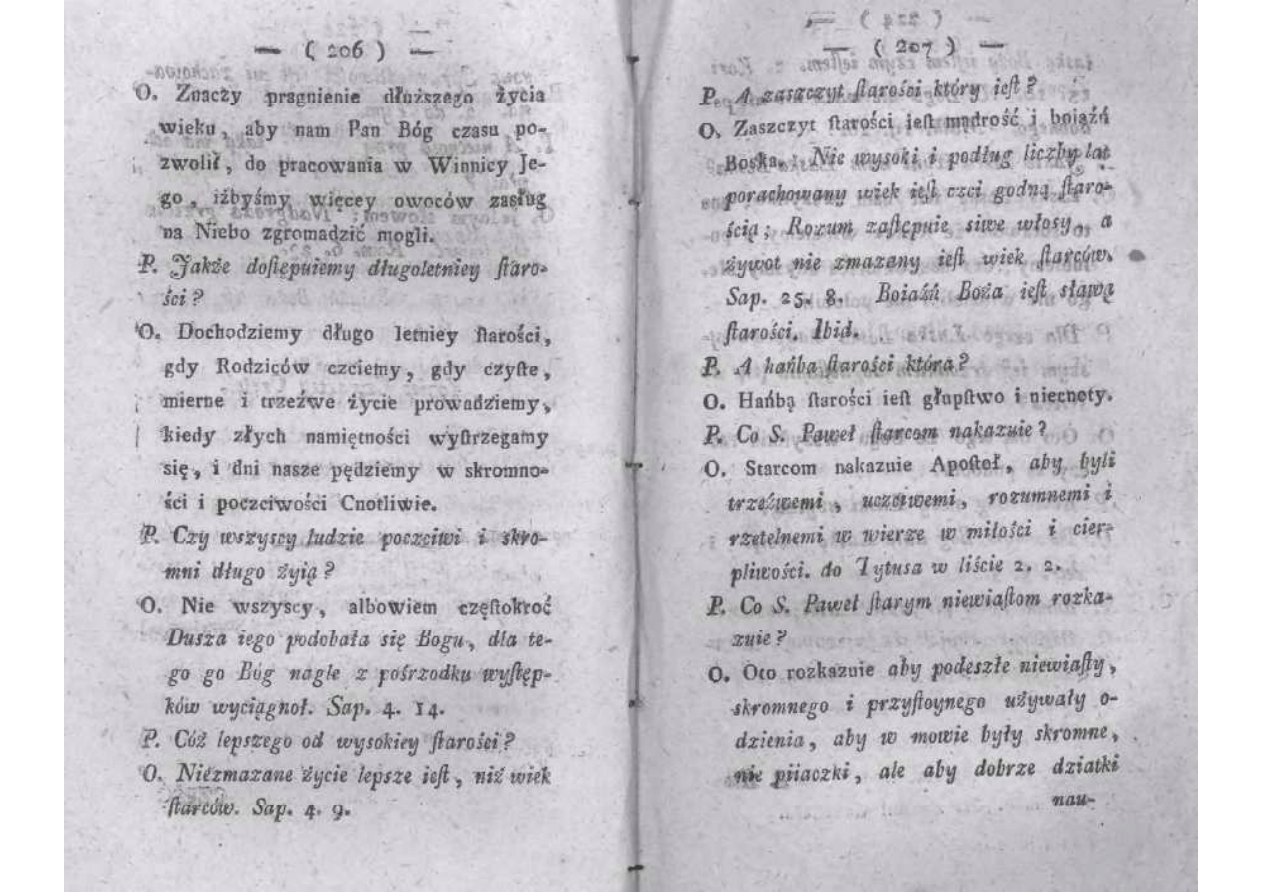 — ( 206 ) —
O. Znaczy pragnienie dłuższego życia
wieku, aby nam Pan Bóg czasu po-
zwolił, do pracowania w Winnicy Je-
go, iżbyśmy więcey owoców zasług
na Niebo zgromadzić mogli.
P. Jakże doſtępuiemy długoletniey ſtaro-
ści?
O. Dochodziemy długo letniey ſtarości,
gdy Rodziców czciemy, gdy czyſte,
mierne i trzeźwe życie prowadziemy,
kiedy złych namiętności wyſtrzegamy
się, i dni nasze pędziemy w skromno-
ści i poczciwości Cnotliwie.
P. Czy wszyscy ludzie poczciwi i skro-
mni długo żyią?
O. Nie wszyscy, albowiem częſtokroć
Dusza iego podobała się Bogu, dla te-
go go Bóg nagle z pośrzodku wyſtęp-
ków wyciągnoł. Sap. 4. 14.
P. Cóż lepszego od wysokiey ſtarości?
O. Niezmazane życie lepsze ieſt, niż wiek
ſtarców. Sap. 4. 9.
— ( 207 ) —
P. A zaszczyt ſtarości który ieſt?
O. Zaszczyt ſtarości ieſt mądrość i boiaźń
Boska. Nie wysoki i podług liczby lat
porachowany wiek ieſt czci godną ſtaro-
ścią; Rozum zaſtępuie siwe włosy, a
żywot nie zmazany ieſt wiek ſtarców.
Sap. 25. 8. Boiaźń Boża ieſt sławą
ſtarości. Ibid.
P. A hańba ſtarości która?
O. Hańbą ſtarości ieſt głupſtwo i niecnoty.
P. Co S. Paweł ſtarcom nakazuie?
O. Starcom nakazuie Apoſtoł, aby byli
trzeźwemi, uczciwemi, rozumnemi i
rzetelnemi w wierze w miłości i cier-
pliwości. do Tytusa w liście 2. 2.
P. Co S. Paweł ſtarym niewiaſtom rozka-
zuie?
O. Oto rozkazuie aby podeszłe niewiaſty,
skromnego i przyſtoynego używały o-
dzienia, aby w mowie były skromne,
nie piiaczki, ale aby dobrze dziatki
nau-